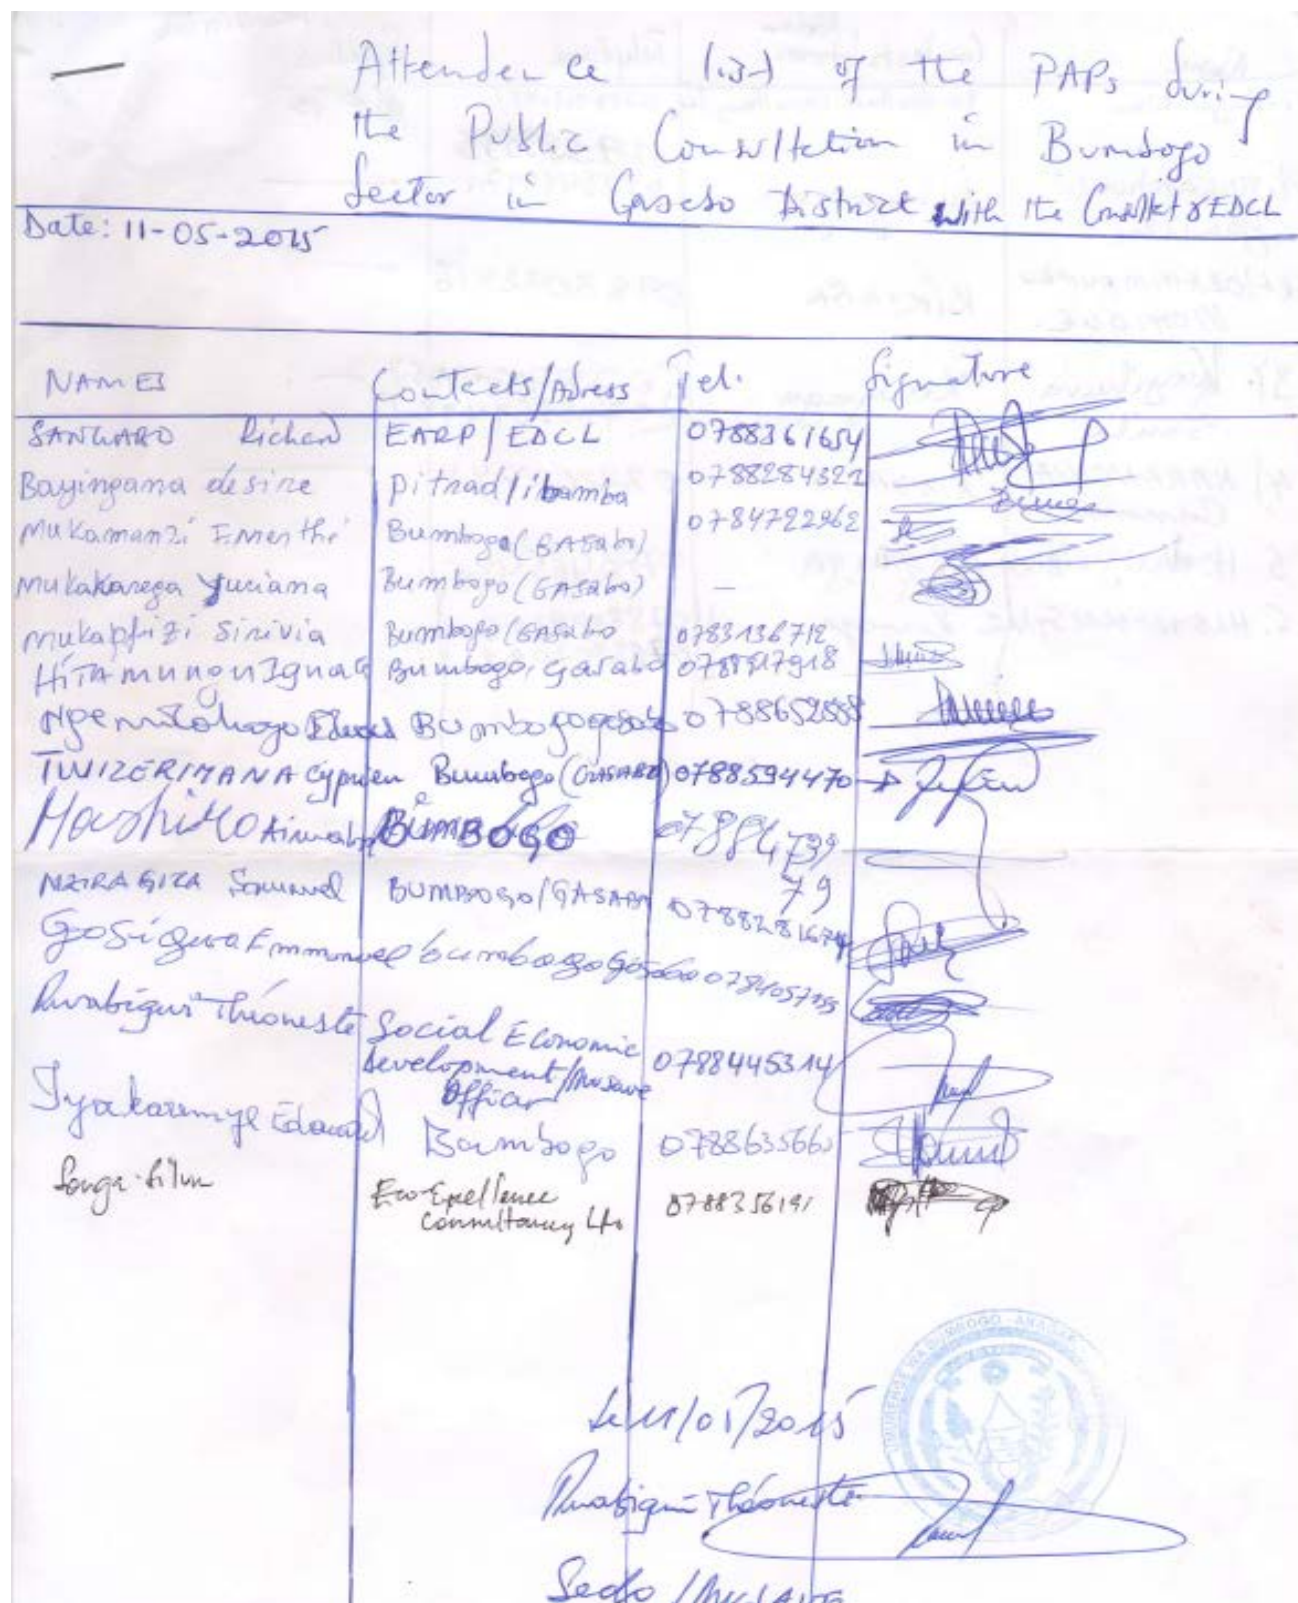 Attendence list of the PAPs during
the Public Consultation in Bumbogo
Sector in Gasabo District with the Consultet & EDCL
Date: 11-05-2015
NAMES Contacts/Adress Tel. Signature
SANGANO Richard EARP/EDCL 0788361654
Bayingana desire pitnad/ibamba 0788284322
Mukamanzi Emerthi Bumbogo (GASabo) 0784722962
Mukakarega Yuciana Bumbogo (GASabo) -
Mukapfizi Sirivia Bumbogo (GASabo 0783136712
HiTAmungu Ignace Bumbogo, Gasabo 0788517918
Bumbogo gasabo 0788652555
TWIZERIMANA Cyprien Bumbogo (GASABO) 0788594470
BUMBOGO 07884739
79
NZIRAGIRA Samuel BUMBOGO/GASABO
Gosigwa Emmanuel bumbogo Gasabo
Rwabigwi Théoneste Social Economic
development/Musave 0788445314
Officer
Iyakaremye Edouard Bumbogo 078863566
Songa Silvin Eco-Excellence 078835619
Consultancy Ltd
Le 11/05/2015
Rwabigwi Théoneste
Sedo /